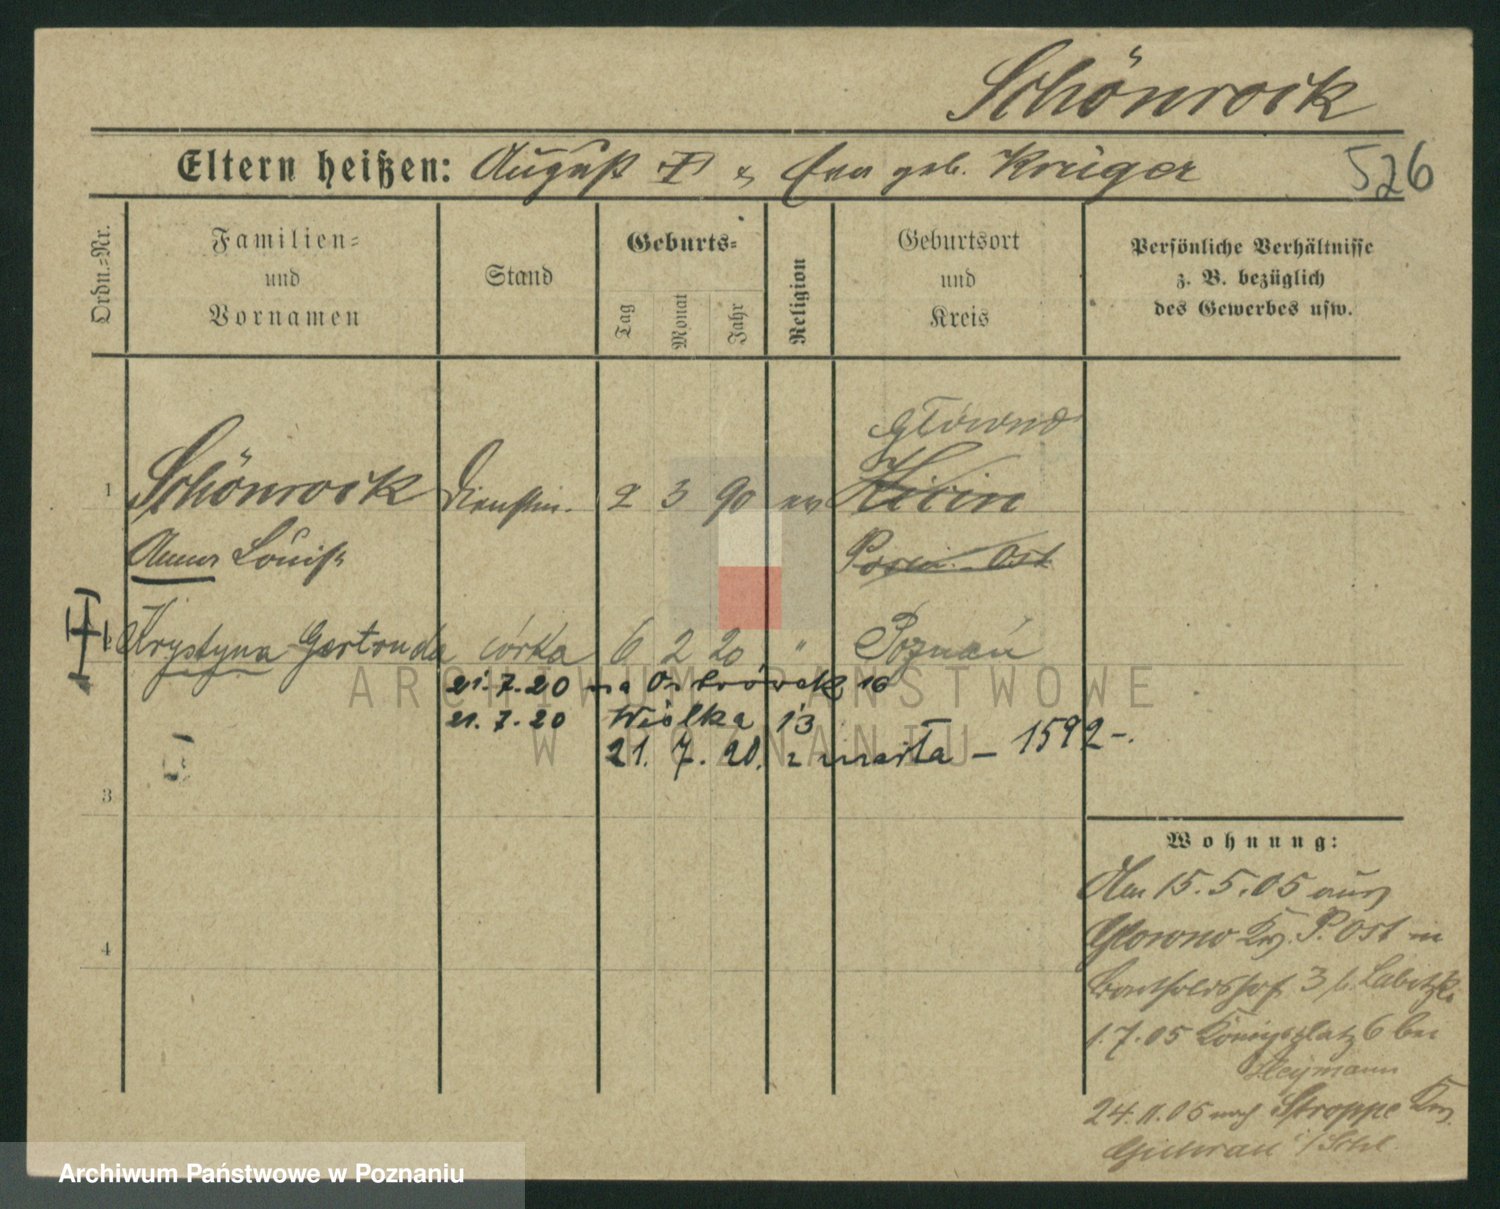 Schönrock
Eltern heißen: August & Eva geb. Krüger
526
Ordn.-Nr.
Familien-
und
Vornamen
Stand
Geburts-
Tag
Monat
Jahr
Religion
Geburtsort
und
Kreis
Persönliche Verhältnisse
z. B. bezüglich
des Gewerbes usw.
Główno
1 Schönrock Dienstm. 2 3 90 ev
Anna Louise Posen Ost
2 Krystyna Gertruda córka 6 2 20 " Poznań
21.7.20 na Ostrówek 16
21.7.20 Wielka 13
21. 7. 20. zmarła – 1592 –.
3
4
Wohnung:
Am 15.5.05 aus
Glowno Krs. P. Ost in
Bartholdshof 3 b. Labitzki
1.7.05 Königsplatz 6 bei
Heymann
24.11.05 nach Stroppe Krs.
Guhrau i/Schl.
ARCHIWUM PAŃSTWOWE
W POZNANIU
Archiwum Państwowe w Poznaniu